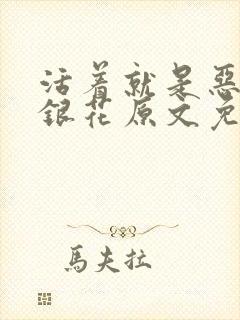 活着就是惡
銀花原文免
馬夫拉